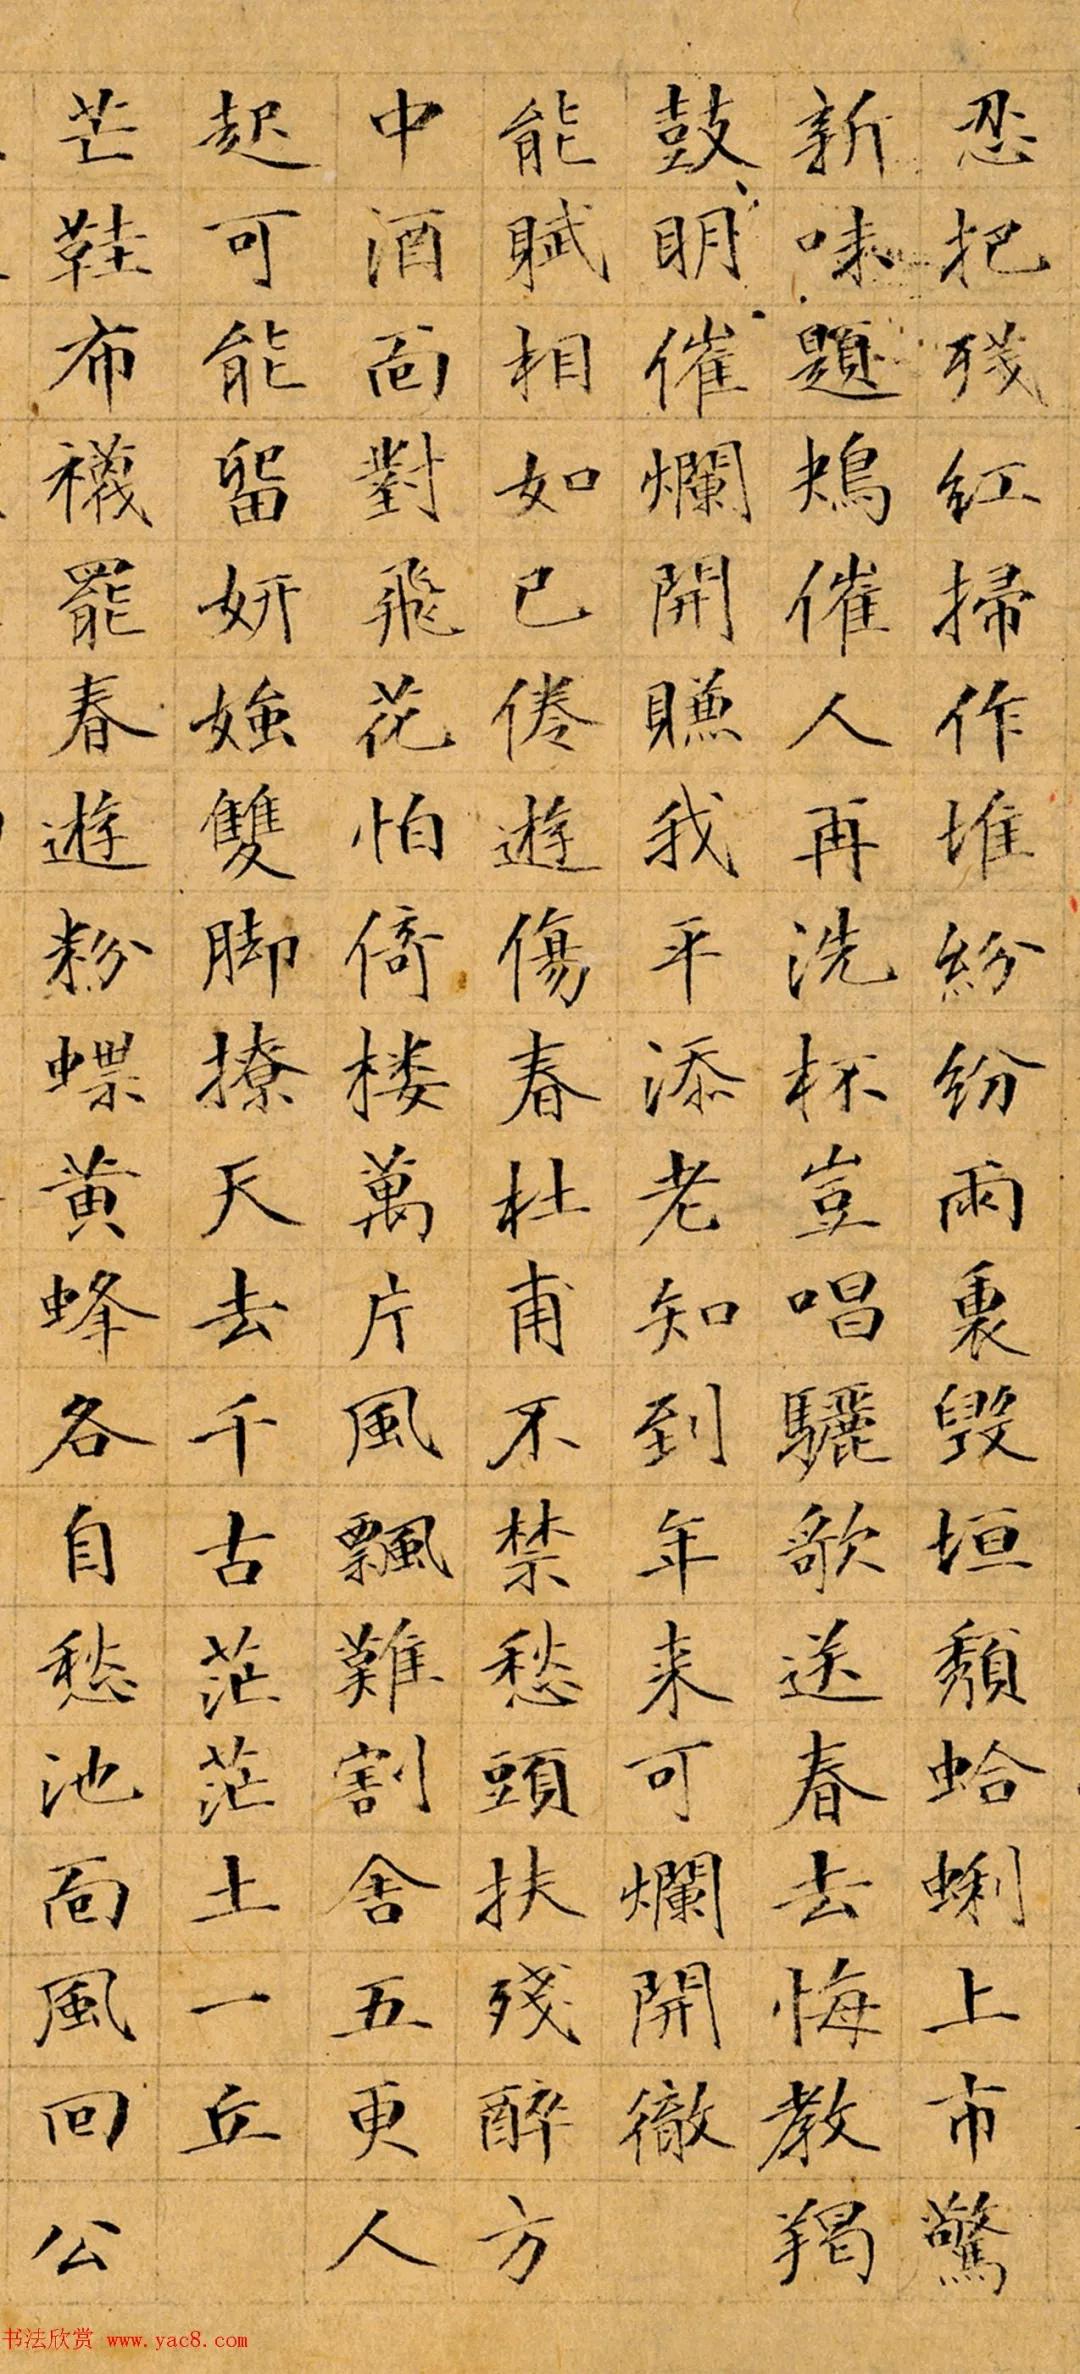 忍把殘紅掃作堆紛紛雨裏毀垣頹蛤蜊上市驚
新味鶗鴂催人再洗杯豈唱驪歌送春去悔教羯
鼓明催爛開賺我平添老知到年来可爛開徹
能賦相如已倦遊傷春杜甫不禁愁頭扶殘醉方
中酒面對飛花怕倚楼萬片風飄難割舍五更人
起可能留妍媸雙脚撩天去千古茫茫土一丘
芒鞋布襪罷春遊粉蝶黄蜂各自愁池面風回公
书法欣赏 www.yac8.com